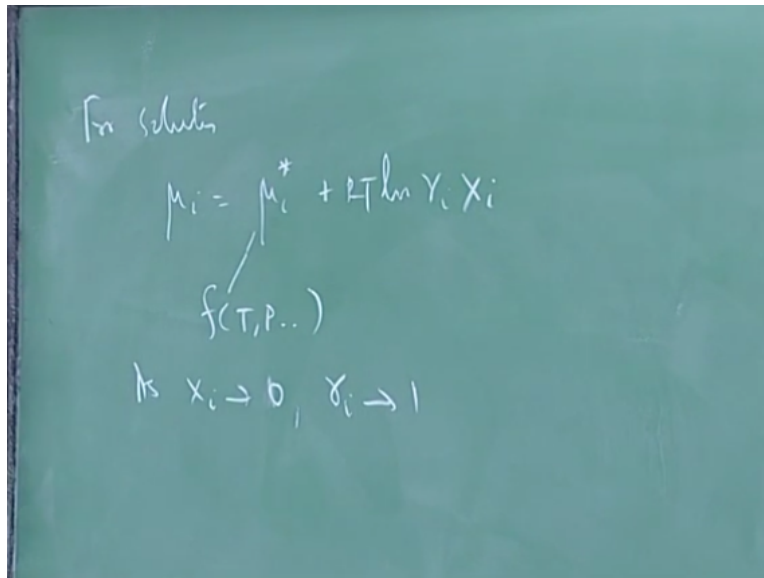 For solutes
μᵢ = μᵢ* + RT ln γᵢ xᵢ
f(T, P..)
As xᵢ → 0, γᵢ → 1